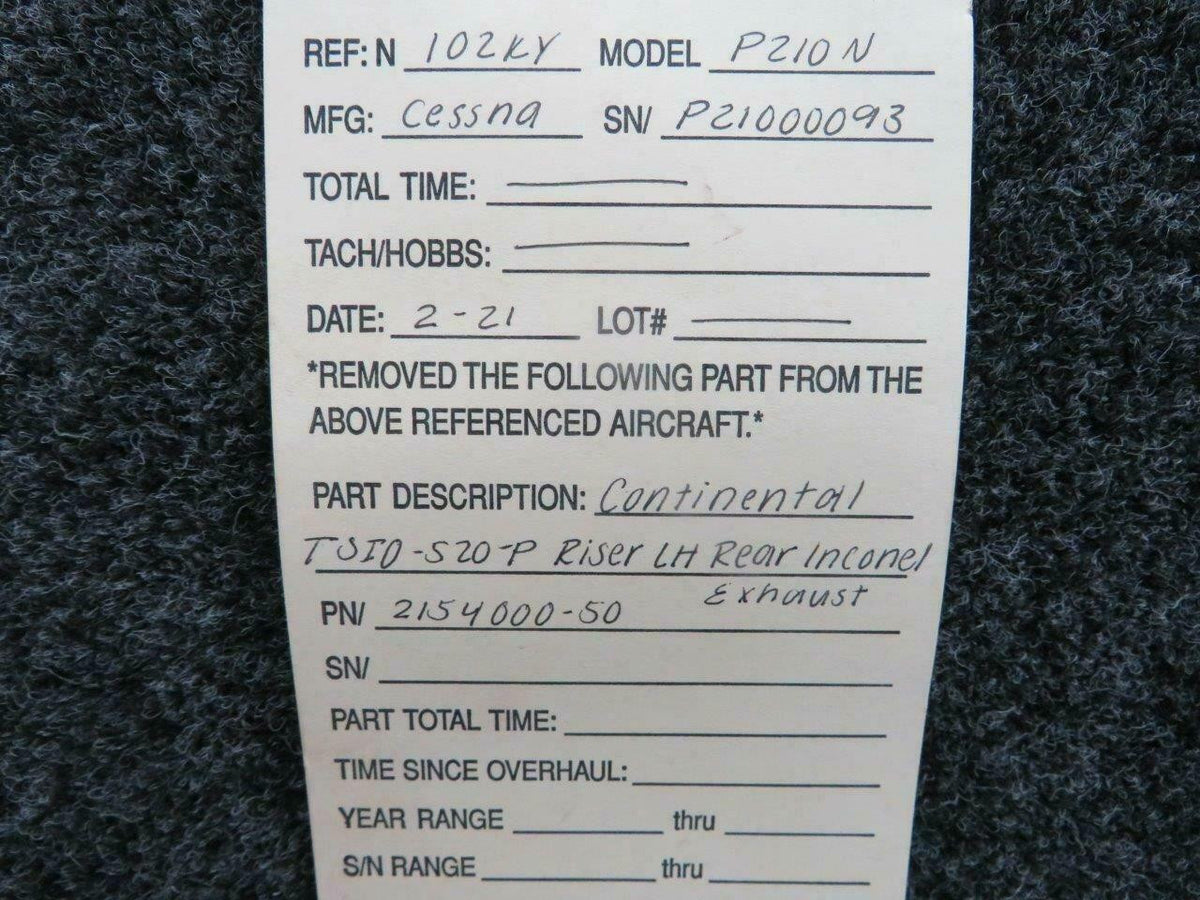 REF: N 102KY MODEL P210N
MFG: Cessna SN/ P21000093
TOTAL TIME:
TACH/HOBBS:
DATE: 2-21 LOT#
*REMOVED THE FOLLOWING PART FROM THE
ABOVE REFERENCED AIRCRAFT.*
PART DESCRIPTION: Continental
TSIO-520-P Riser LH Rear Inconel
Exhaust
PN/ 2154000-50
SN/
PART TOTAL TIME:
TIME SINCE OVERHAUL:
YEAR RANGE thru
S/N RANGE thru